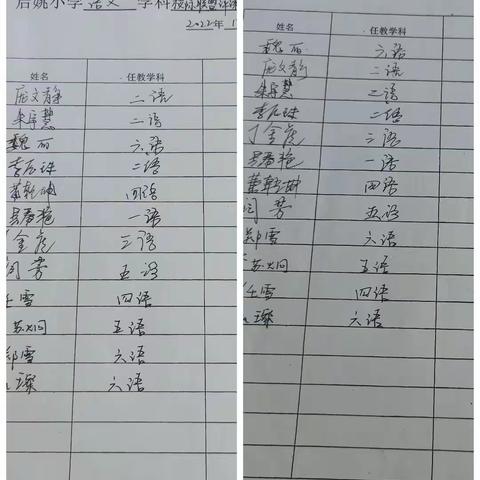 后姚小学 语文 学科校际联盟
2022年1
姓名 任教学科
庞文静 二语
朱宇慧 二语
魏丽 六语
李石珠 二语
董乾坤 四语
艳 一语
丁金虎 三语
闫芳 五语
任雪 四语
苏炯 五语
郑雪 六语
璨 六语
姓名 任教学科
魏丽 六语
庞文静 二语
朱宇慧 二语
李石珠 二语
丁金虎 三语
艳 一语
董乾坤 四语
闫芳 五语
郑雪 六语
苏炯 五语
任雪 四语
璨 六语